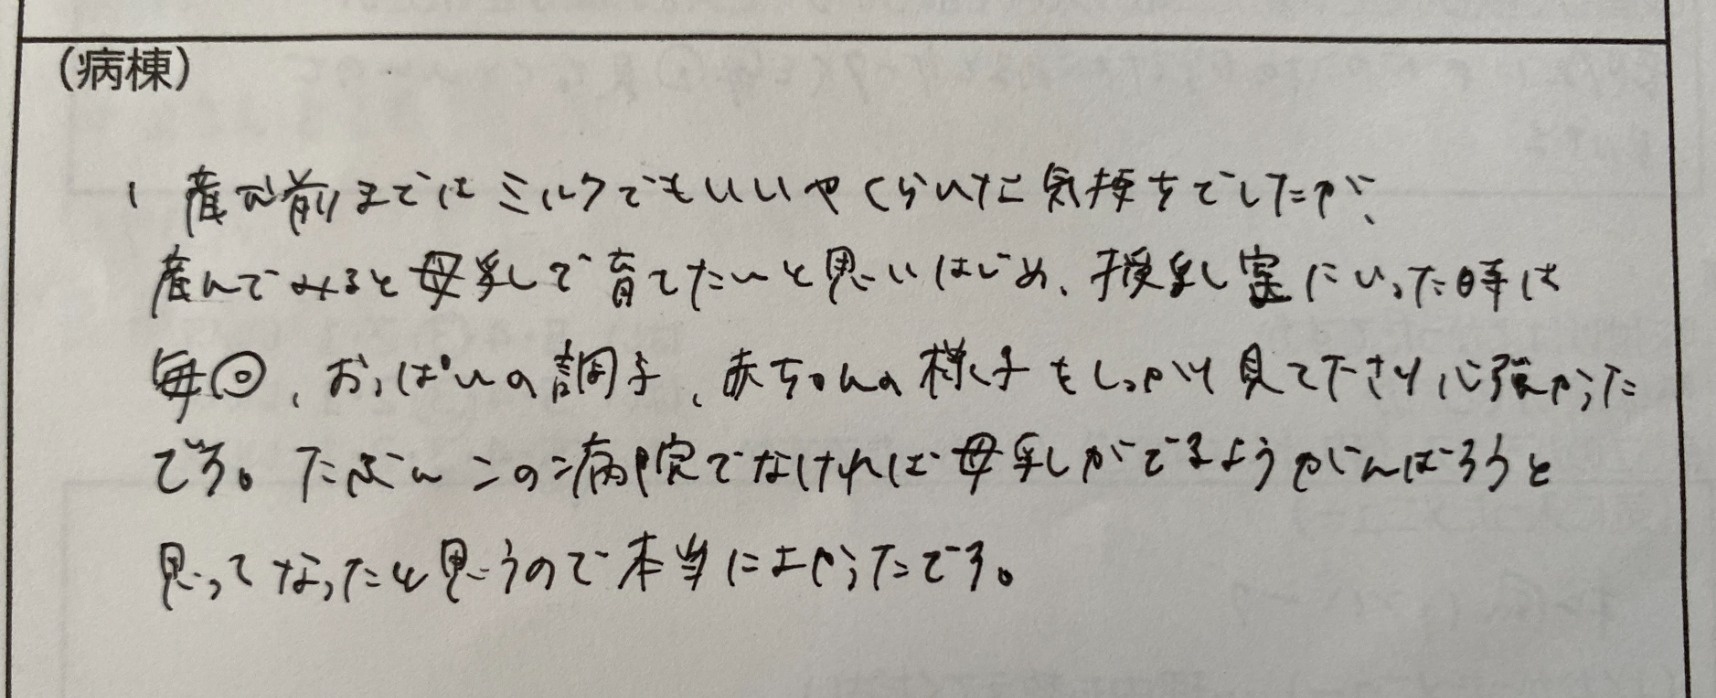 (病棟)
産む前まではミルクでもいいやくらいな気持ちでしたが、
産んでみると母乳で育てたいと思いはじめ、授乳室にいった時は
毎回、おっぱいの調子、赤ちゃんの様子もしっかり見て下さり心強かった
です。たぶんこの病院でなければ母乳がでるようがんばろうと
思ってなかったと思うので本当によかったです。